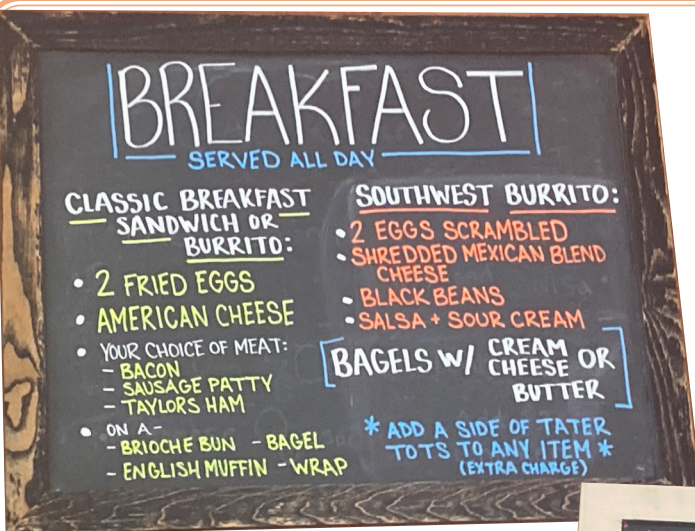 BREAKFAST
SERVED ALL DAY
CLASSIC BREAKFAST
SANDWICH OR
BURRITO:
• 2 FRIED EGGS
• AMERICAN CHEESE
• YOUR CHOICE OF MEAT:
- BACON
- SAUSAGE PATTY
- TAYLORS HAM
• ON A-
- BRIOCHE BUN - BAGEL
- ENGLISH MUFFIN - WRAP
SOUTHWEST BURRITO:
• 2 EGGS SCRAMBLED
• SHREDDED MEXICAN BLEND
CHEESE
• BLACK BEANS
• SALSA + SOUR CREAM
[BAGELS W/ CREAM
CHEESE OR
BUTTER]
* ADD A SIDE OF TATER
TOTS TO ANY ITEM *
(EXTRA CHARGE)